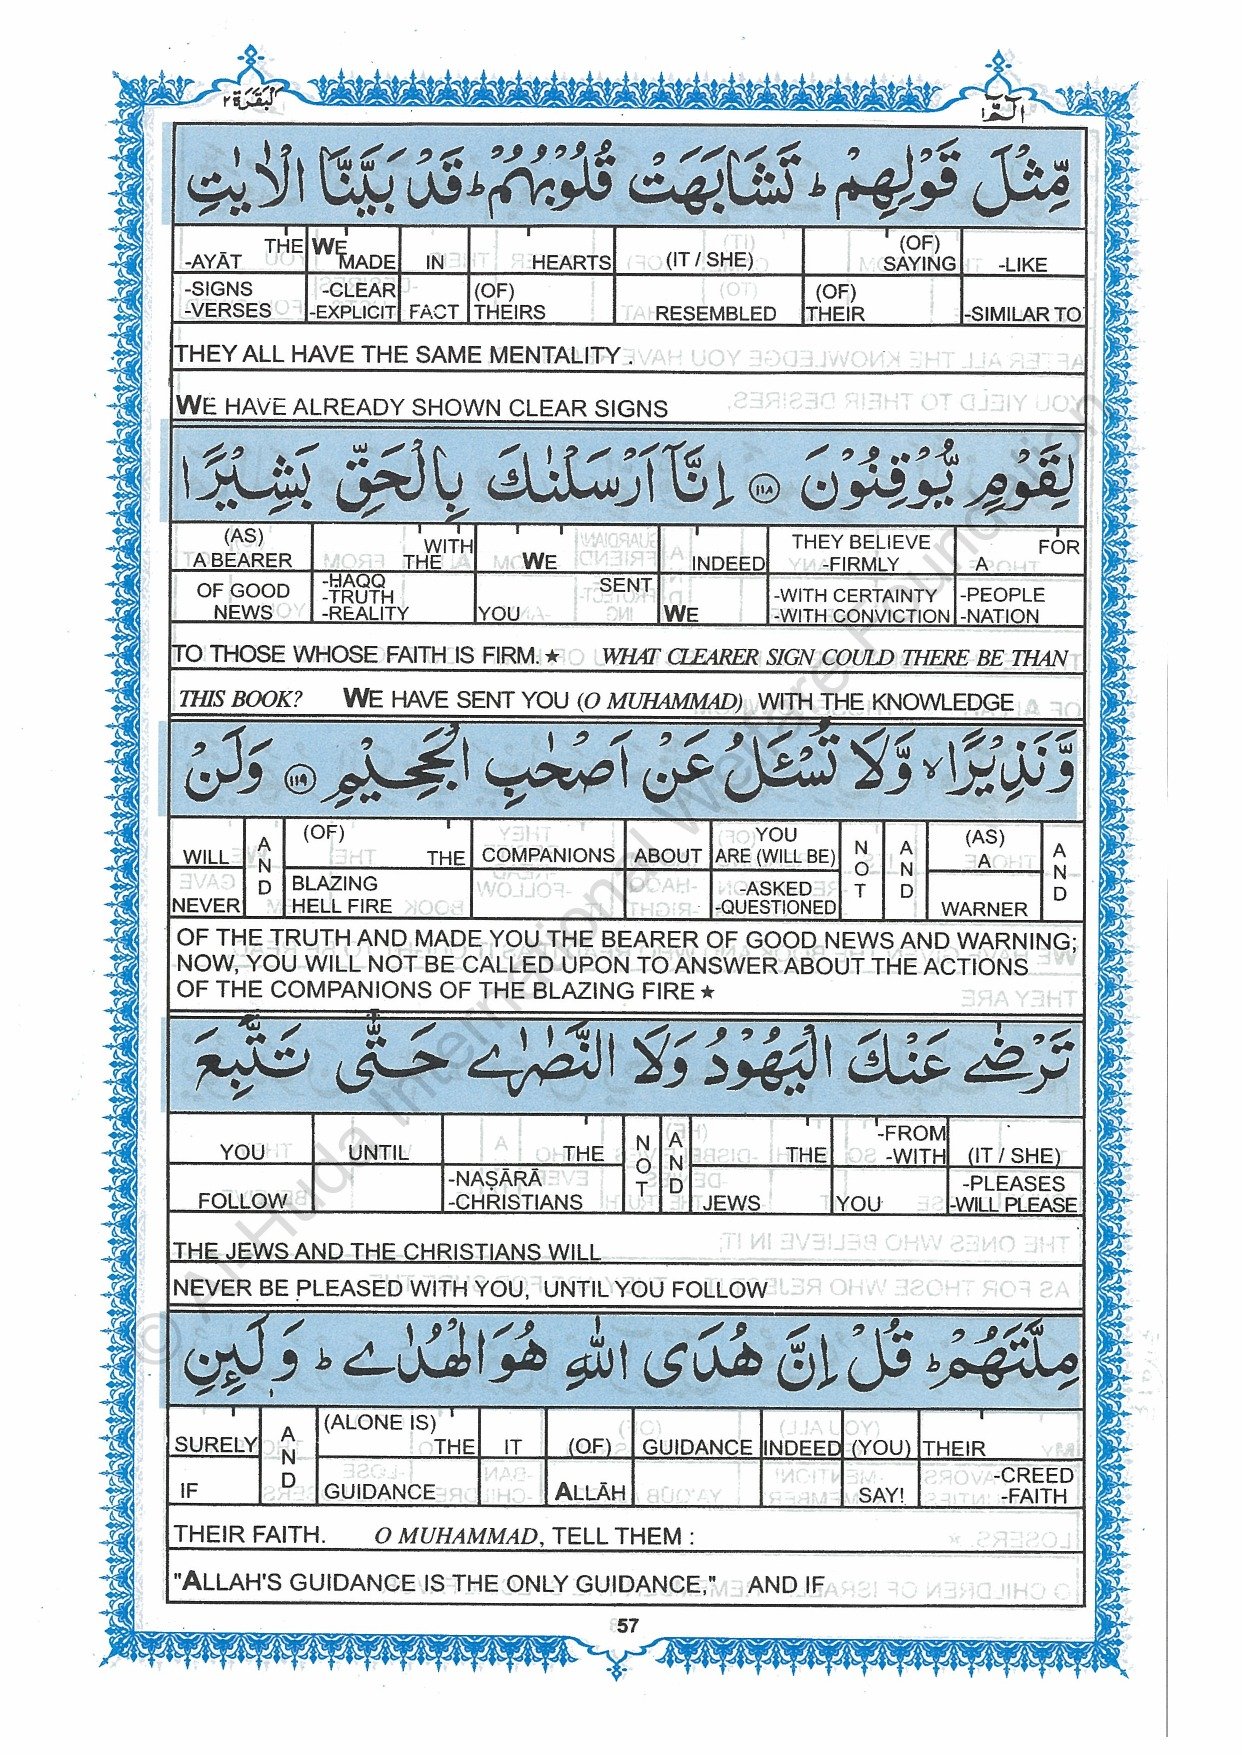 البقرة ٢
الٓمّٓ ١
مِّثْلَ قَوْلِهِمْ ؕ تَشَابَهَتْ قُلُوْبُهُمْ ؕ قَدْ بَيَّنَّا الْاٰيٰتِ
THE WE (OF)
-AYĀT MADE IN HEARTS (IT / SHE) SAYING -LIKE
-SIGNS -CLEAR (OF) (OF)
-VERSES -EXPLICIT FACT THEIRS RESEMBLED THEIR -SIMILAR TO
THEY ALL HAVE THE SAME MENTALITY .
WE HAVE ALREADY SHOWN CLEAR SIGNS
لِقَوْمٍ يُّوْقِنُوْنَ ﴿۱۱۸﴾ اِنَّاۤ اَرْسَلْنٰكَ بِالْحَقِّ بَشِيْرًا
(AS) WITH THEY BELIEVE FOR
A BEARER THE WE INDEED -FIRMLY A
OF GOOD -HAQQ SENT -WITH CERTAINTY -PEOPLE
NEWS -TRUTH YOU WE -WITH CONVICTION -NATION
-REALITY
TO THOSE WHOSE FAITH IS FIRM.★ WHAT CLEARER SIGN COULD THERE BE THAN
THIS BOOK? WE HAVE SENT YOU (O MUHAMMAD) WITH THE KNOWLEDGE
وَّنَذِيْرًا ۙ وَّلَا تُسْـَٔلُ عَنْ اَصْحٰبِ الْجَحِيْمِ ﴿۱۱۹﴾ وَلَنْ
(OF) YOU (AS)
WILL AND THE COMPANIONS ABOUT ARE (WILL BE) NOT AND A AND
BLAZING -ASKED
NEVER HELL FIRE -QUESTIONED WARNER
OF THE TRUTH AND MADE YOU THE BEARER OF GOOD NEWS AND WARNING;
NOW, YOU WILL NOT BE CALLED UPON TO ANSWER ABOUT THE ACTIONS
OF THE COMPANIONS OF THE BLAZING FIRE ★
تَرْضٰے عَنْكَ الْيَهُوْدُ وَلَا النَّصٰرٰے حَتّٰى تَتَّبِعَ
-FROM
YOU UNTIL THE NOT AND THE -WITH (IT / SHE)
-NAṢĀRĀ -PLEASES
FOLLOW -CHRISTIANS JEWS YOU -WILL PLEASE
THE JEWS AND THE CHRISTIANS WILL
NEVER BE PLEASED WITH YOU, UNTIL YOU FOLLOW
مِلَّتَهُمْ ؕ قُلْ اِنَّ هُدَى اللّٰهِ هُوَ الْهُدٰے ؕ وَلَئِنِ
(ALONE IS)
SURELY AND THE IT (OF) GUIDANCE INDEED (YOU) THEIR
-CREED
IF GUIDANCE ALLĀH SAY! -FAITH
THEIR FAITH. O MUHAMMAD, TELL THEM :
"ALLAH'S GUIDANCE IS THE ONLY GUIDANCE," AND IF
57
© Al-Huda International Welfare Foundation